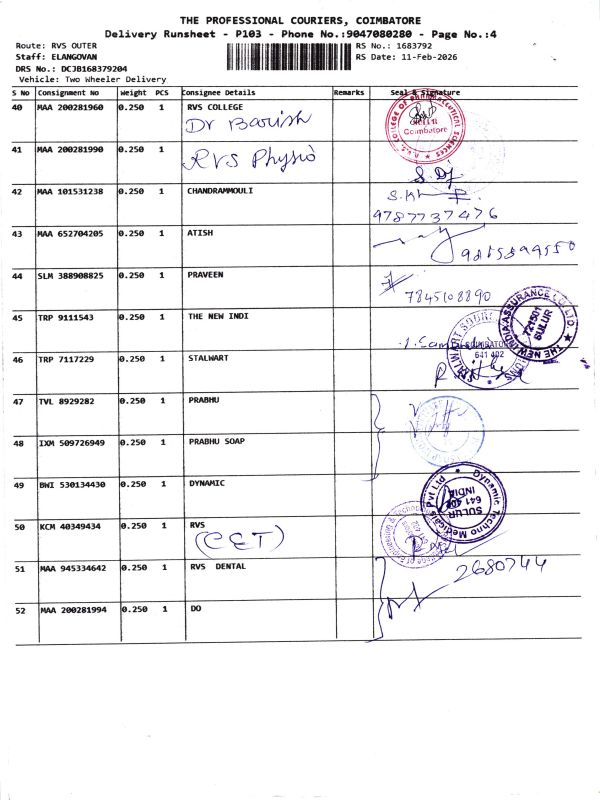 THE PROFESSIONAL COURIERS, COIMBATORE
Delivery Runsheet - P103 - Phone No.:9047080280 - Page No.:4
Route: RVS OUTER
Staff: ELANGOVAN
DRS No.: DCJB168379204
Vehicle: Two Wheeler Delivery
RS No.: 1683792
RS Date: 11-Feb-2026
S No Consignment No Weight PCS Consignee Details Remarks Seal & Signature
40 MAA 200281960 0.250 1 RVS COLLEGE
Dr Barish
Coimbatore
41 MAA 200281990 0.250 1
RVS Physio
42 MAA 101531238 0.250 1 CHANDRAMMOULI
9787737476
43 MAA 652704205 0.250 1 ATISH
44 SLM 388908825 0.250 1 PRAVEEN
7845108890
45 TRP 9111543 0.250 1 THE NEW INDI
THE NEW INDIA ASSURANCE CO. LTD.
721501
SULUR
46 TRP 7117229 0.250 1 STALWART
641 402
47 TVL 8929282 0.250 1 PRABHU
48 IXM 509726949 0.250 1 PRABHU SOAP
49 BWI 530134430 0.250 1 DYNAMIC
Dynamic Techno Medicals Pvt Ltd
SULUR
INDIA
50 KCM 40349434 0.250 1 RVS
(CET)
51 MAA 945334642 0.250 1 RVS DENTAL
2680744
52 MAA 200281994 0.250 1 DO